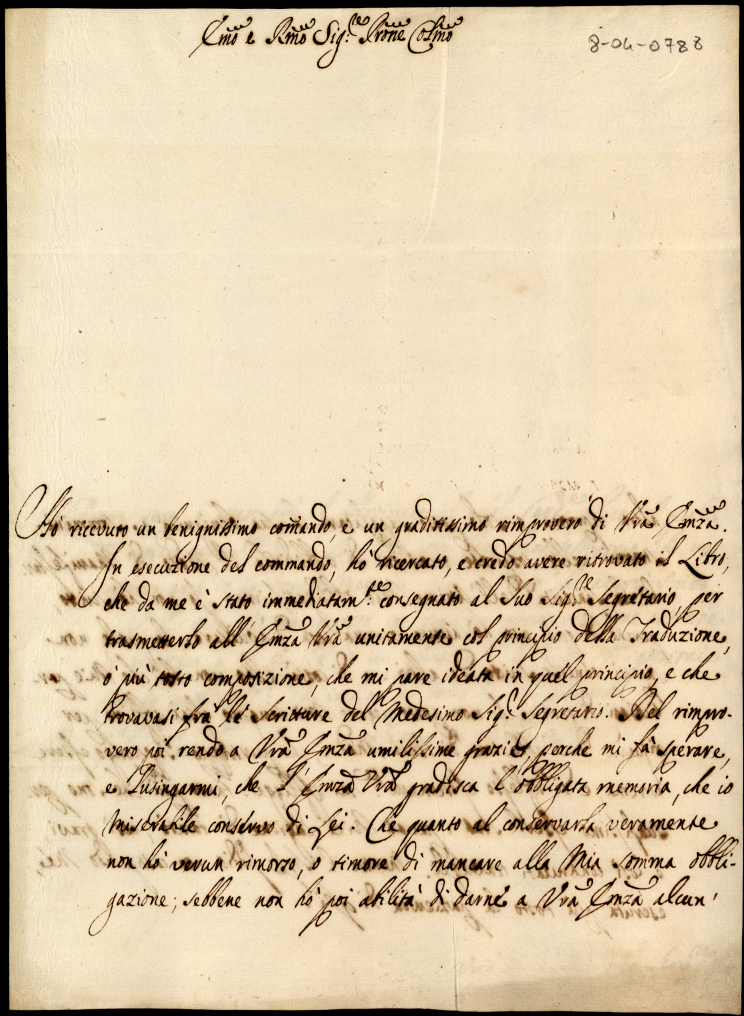 Emo e Rmo Sig.re Prone Colmo
8-04-0788
Hò ricevuto un benignissimo comando, e un graditissimo rimprovero di Vrã Emza.
In esecuzione del commando, hò ricercato, e credo avere ritrovato il Libro,
che da me è stato immediatam.te consegnato al Suo Sig.re Segretario, per
trasmetterlo all' Emza Vrã unitamente col principio della Traduzione,
ò più tosto composizione, che mi pare ideata in quel principio, e che
trovavasi frà le scritture del Medesimo Sig.r Segretario. Nel rimpro-
vero poi rendo a Vrã Emza umilissime grazie, perche mi fà sperare,
e lusingarmi, che l' Emza Vrã gradisca l'obbligata memoria, che io
miserabile conservo di Lei. Che quanto al conservarla veramente
non hò verun rimorso, o timore di mancare alla Mia somma obbli-
gazione; sebbene non hò poi abilità di darne a Vrã Emza alcun'